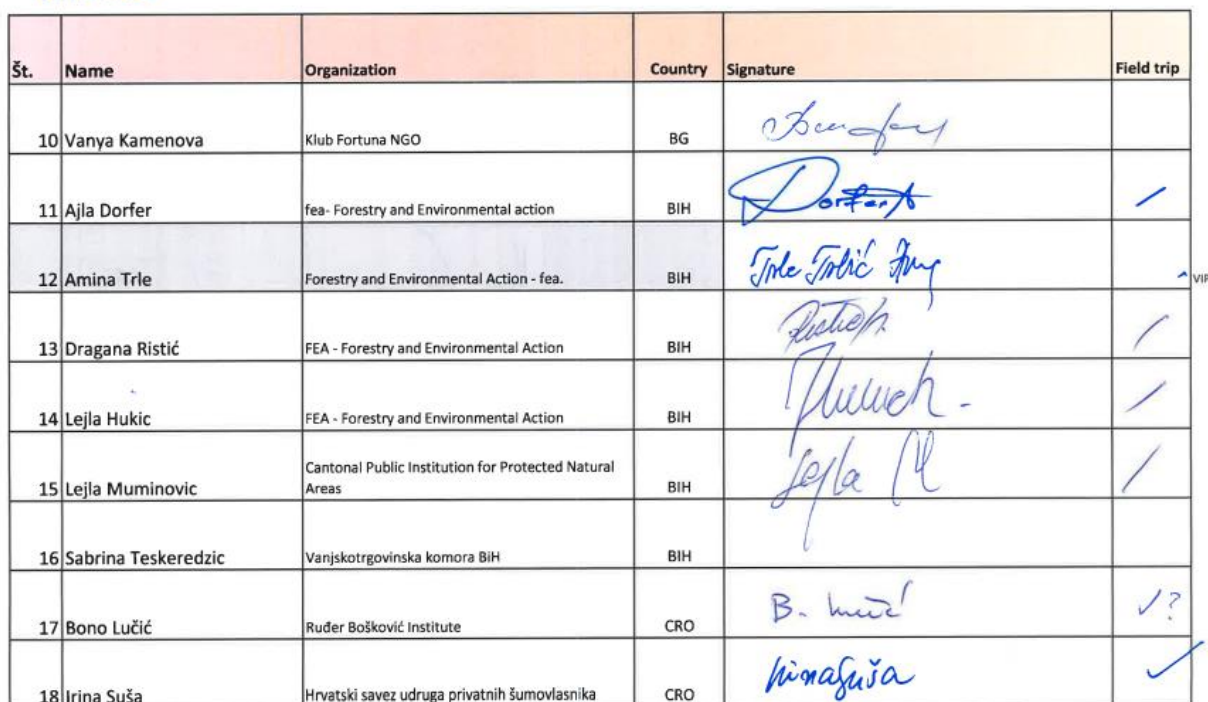 Št. Name Organization Country Signature Field trip
10 Vanya Kamenova Klub Fortuna NGO BG
11 Ajla Dorfer fea- Forestry and Environmental action BIH Dorfer A
12 Amina Trle Forestry and Environmental Action - fea. BIH Trle Trbić VIP
13 Dragana Ristić FEA - Forestry and Environmental Action BIH
14 Lejla Hukic FEA - Forestry and Environmental Action BIH
Cantonal Public Institution for Protected Natural
15 Lejla Muminovic Areas BIH Lejla M
16 Sabrina Teskeredzic Vanjskotrgovinska komora BiH BIH
17 Bono Lučić Ruđer Bošković Institute CRO B. Lučić ✓?
18 Irina Suša Hrvatski savez udruga privatnih šumovlasnika CRO Irina Suša ✓